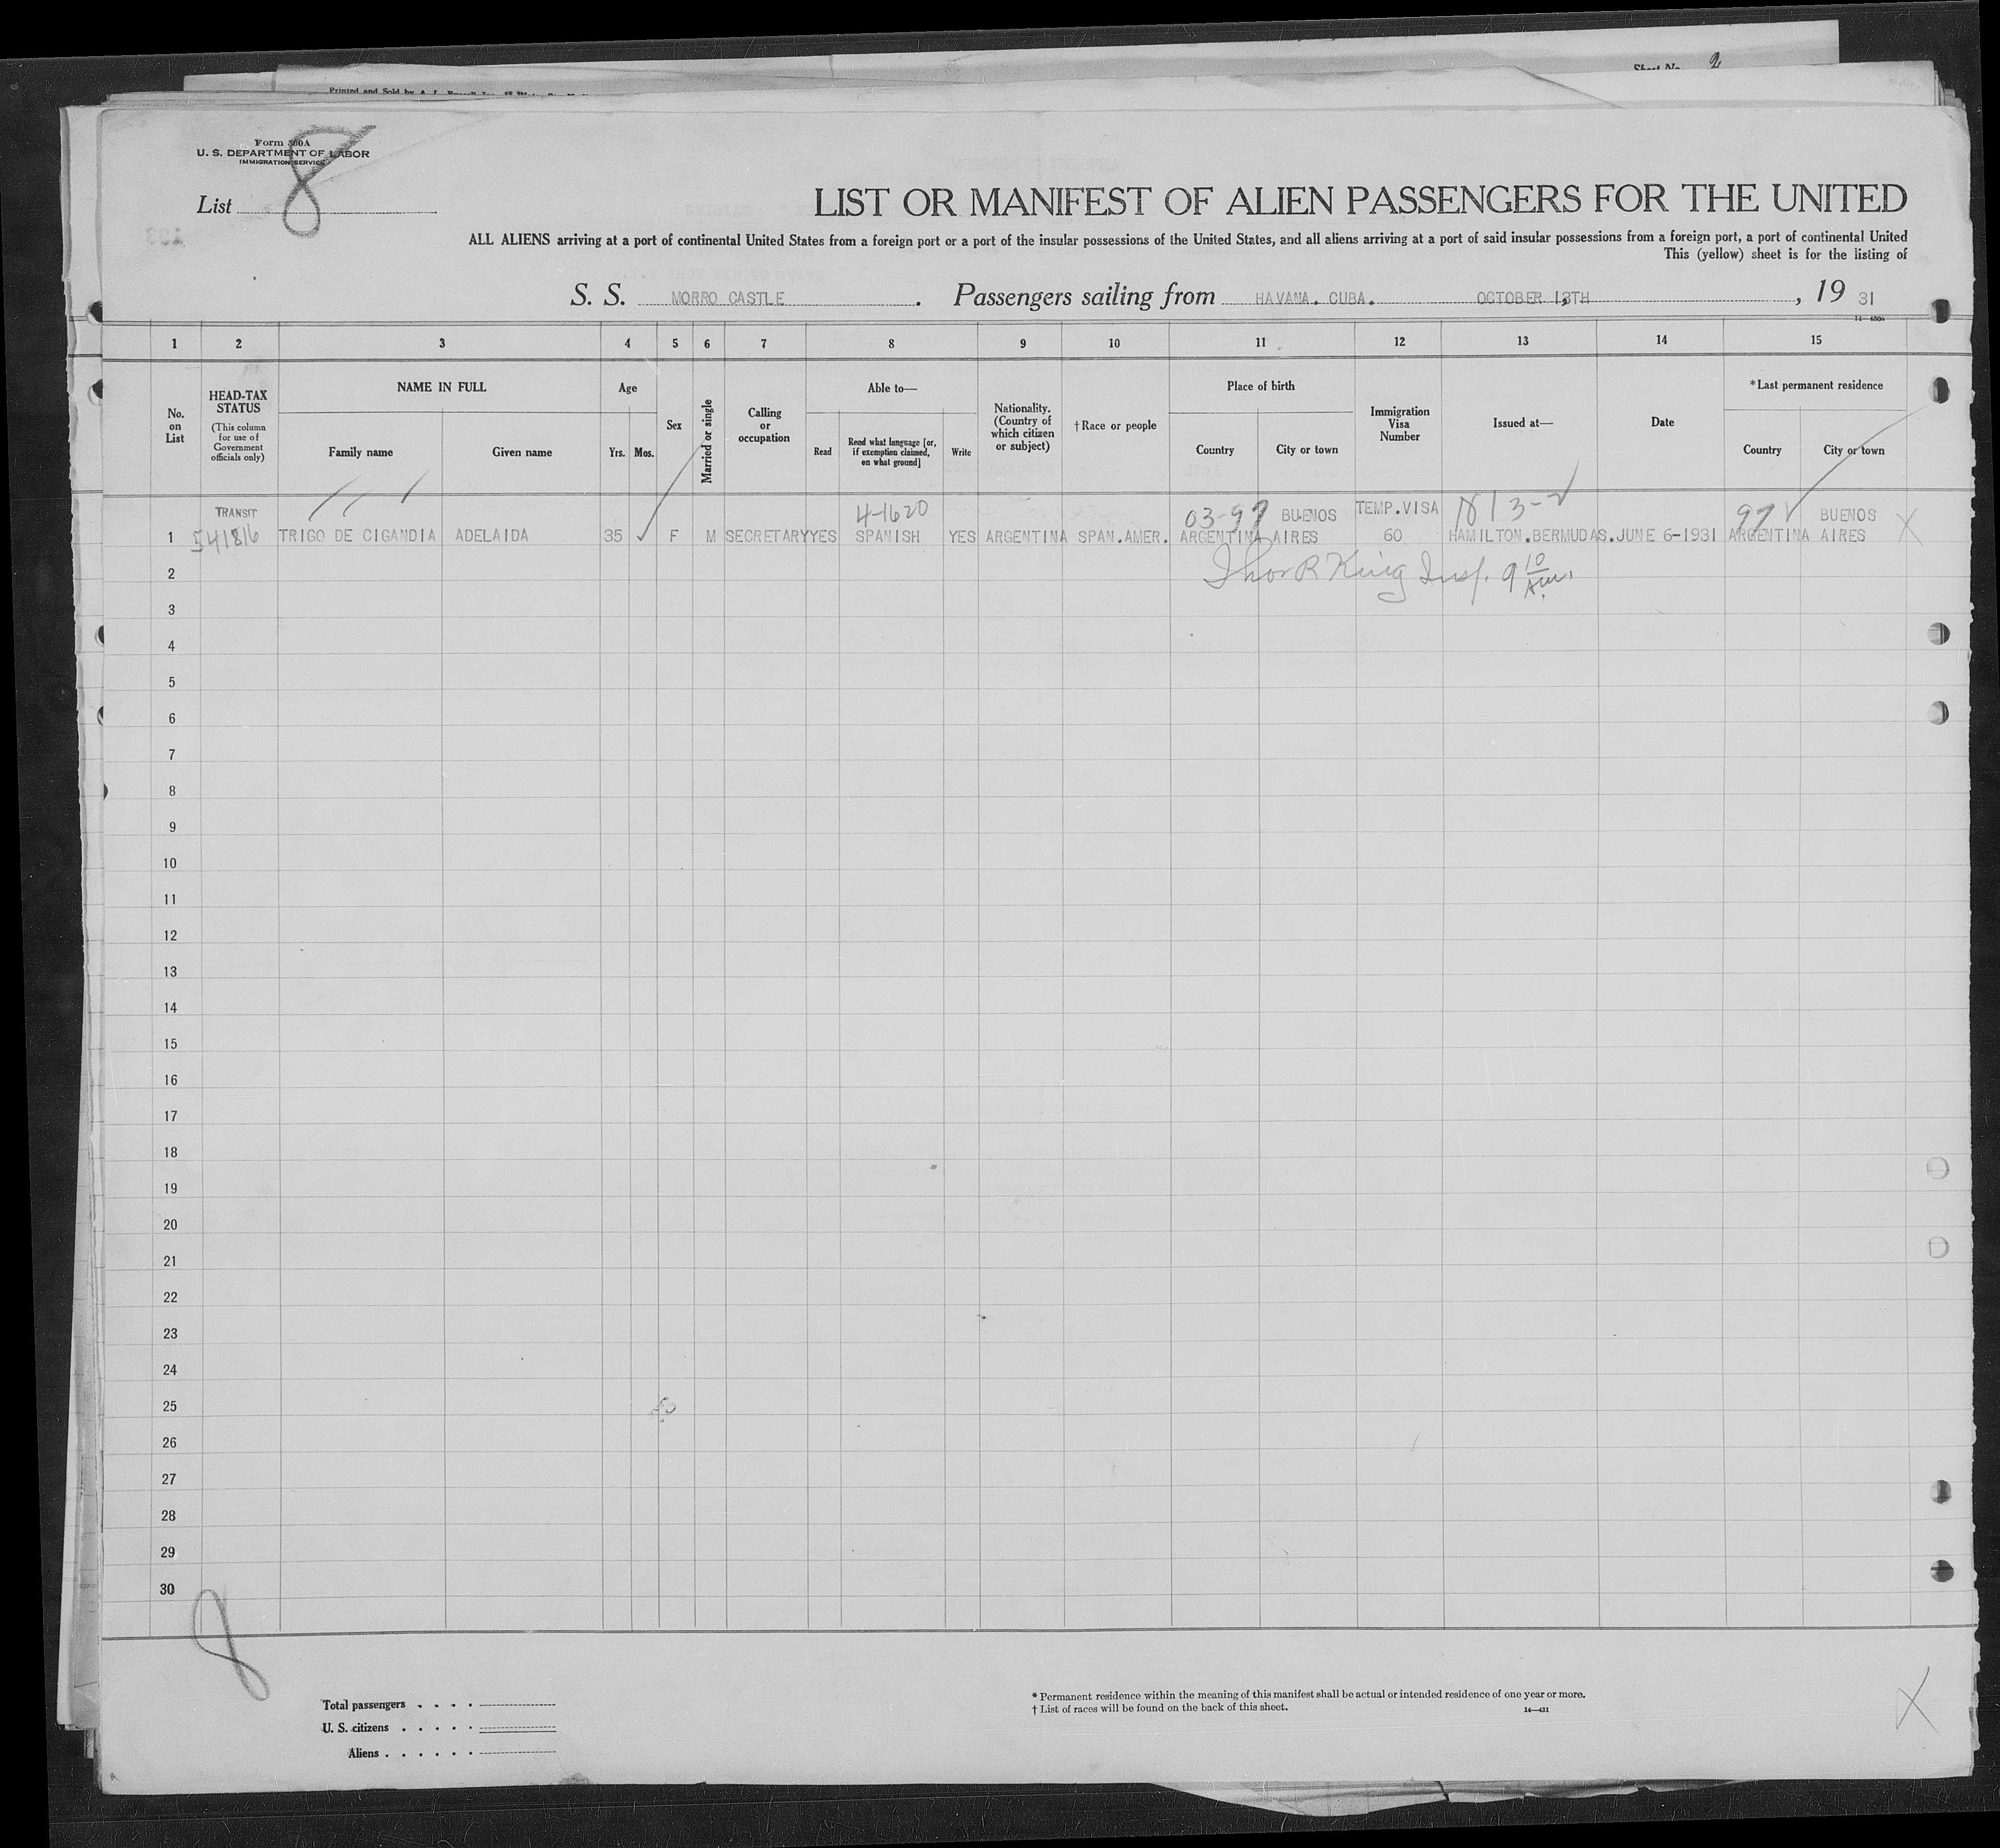 Sheet No. 2
Printed and Sold by
Form 500A
U. S. DEPARTMENT OF LABOR
IMMIGRATION SERVICE
List 8
LIST OR MANIFEST OF ALIEN PASSENGERS FOR THE UNITED
ALL ALIENS arriving at a port of continental United States from a foreign port or a port of the insular possessions of the United States, and all aliens arriving at a port of said insular possessions from a foreign port, a port of continental United
This (yellow) sheet is for the listing of
S. S. MORRO CASTLE. Passengers sailing from HAVANA. CUBA. OCTOBER 13TH, 19 31
1 2 3 4 5 6 7 8 9 10 11 12 13 14 15
No. on List
HEAD-TAX STATUS
(This column for use of Government officials only)
NAME IN FULL
Family name
Given name
Age
Yrs. Mos.
Sex
Married or single
Calling or occupation
Able to—
Read
Read what language [or, if exemption claimed, on what ground]
Write
Nationality. (Country of which citizen or subject)
†Race or people
Place of birth
Country
City or town
Immigration Visa Number
Issued at—
Date
*Last permanent residence
Country
City or town
TRANSIT 4-1620 03-97 BUENOS TEMP.VISA 813-2 97 BUENOS
1 541816 TRIGO DE CIGANDIA ADELAIDA 35 F M SECRETARY YES SPANISH YES ARGENTINA SPAN.AMER. ARGENTINA AIRES 60 HAMILTON.BERMUDAS. JUNE 6-1931 ARGENTINA AIRES X
2 Thos R King Insp. 9 10 AM.
3
4
5
6
7
8
9
10
11
12
13
14
15
16
17
18
19
20
21
22
23
24
25
26
27
28
29
30
8
Total passengers . . . .
U. S. citizens . . . . .
Aliens . . . . . .
* Permanent residence within the meaning of this manifest shall be actual or intended residence of one year or more.
† List of races will be found on the back of this sheet.
14—431
X